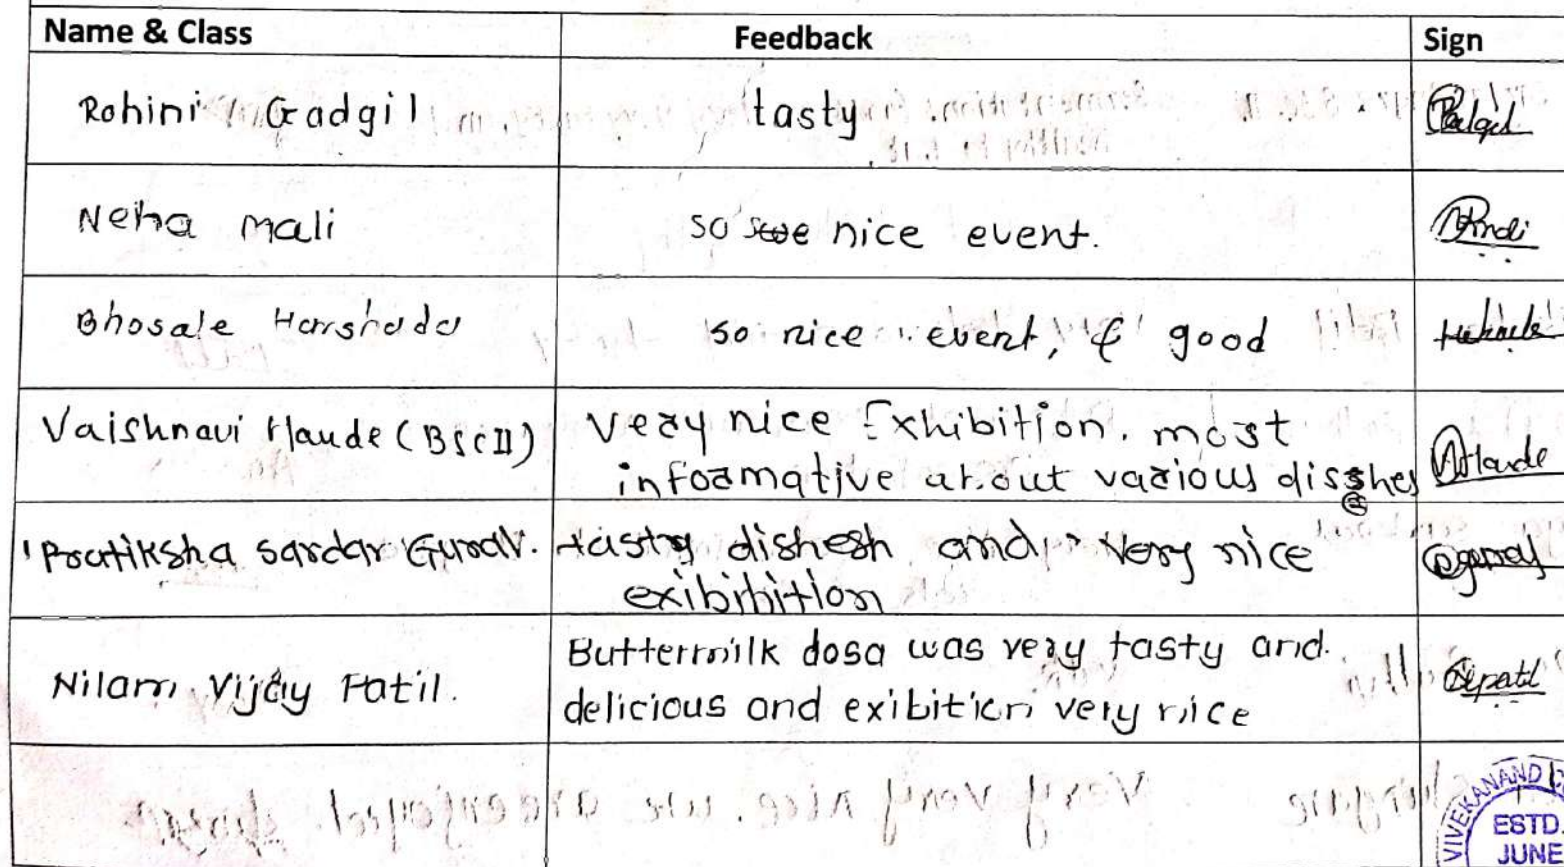 Name & Class Feedback Sign
Rohini Gadgil tasty
Neha mali so nice event.
Bhosale Harshada so nice event, & good
Vaishnavi Hande (BSc II) Very nice Exhibition. most
informative about various disshes
Pratiksha Sardar Gurav. tasty dishesh and very nice
exibihition
Nilam Vijay Patil. Buttermilk dosa was very tasty and
delicious and exibition very nice
VIVEKANAND
ESTD.
JUNE